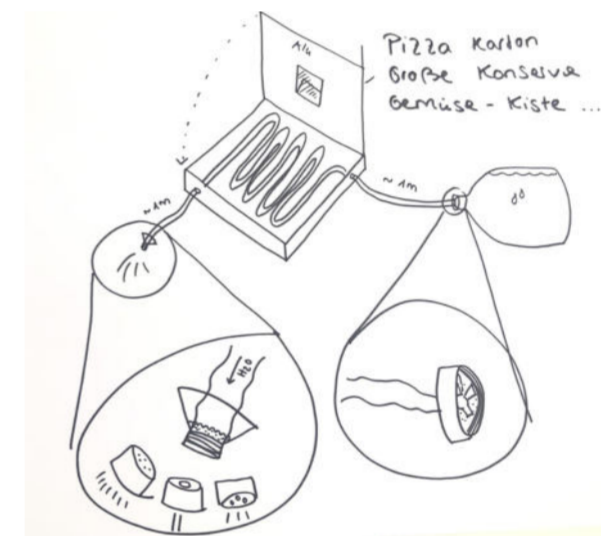 Pizza Karton
Große Konserve
Gemüse - Kiste ...
Alu
~ 1m
~ 1m
H2O